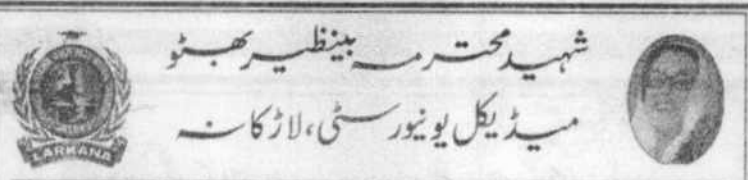 شہید محترمہ بینظیر بھٹو
میڈیکل یونیورسٹی، لاڑکانہ
LARKANA